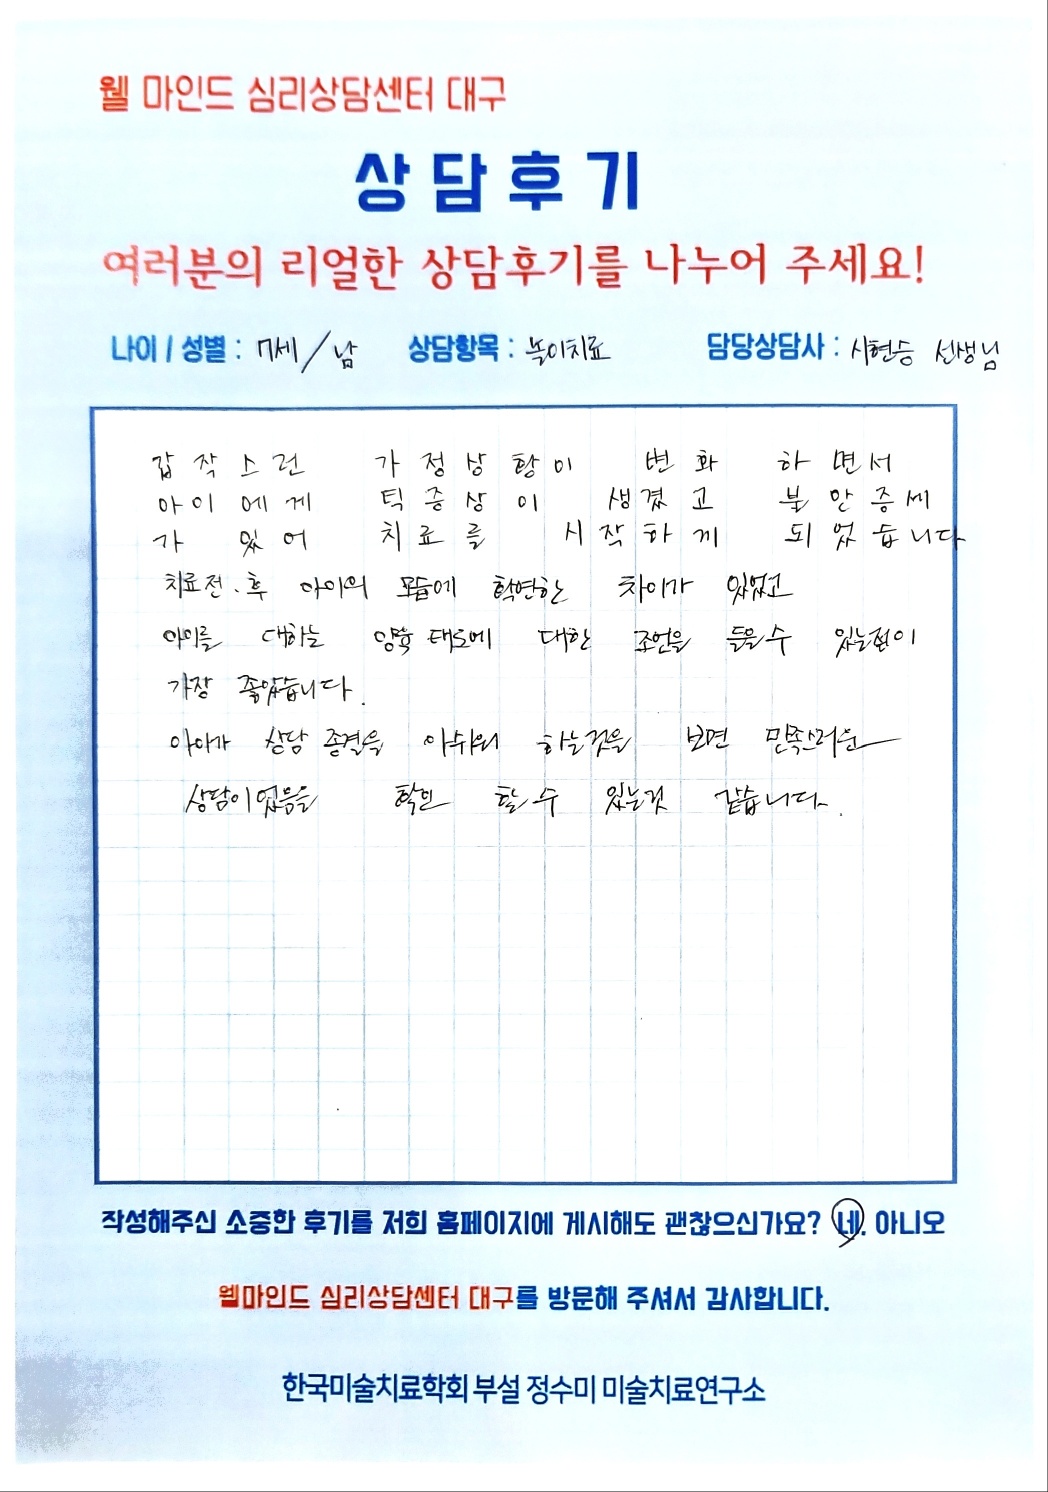 웰 마인드 심리상담센터 대구
상담후기
여러분의 리얼한 상담후기를 나누어 주세요!
나이 / 성별 : 7세 / 남 상담항목 : 놀이치료 담당상담사 : 시현승 선생님
갑작스런 가정상황이 변화 하면서
아이에게 틱증상이 생겼고 불안증세
가 있어 치료를 시작하게 되었습니다
치료전·후 아이의 모습에 확연한 차이가 있었고
아이를 대하는 양육 태도에 대한 조언을 들을수 있는점이
가장 좋았습니다.
아이가 상담 종결을 아쉬워 하는것을 보면 만족스러운
상담이었음을 확인 할 수 있는것 같습니다.
작성해주신 소중한 후기를 저희 홈페이지에 게시해도 괜찮으신가요? 네. 아니오
웰마인드 심리상담센터 대구를 방문해 주셔서 감사합니다.
한국미술치료학회 부설 정수미 미술치료연구소